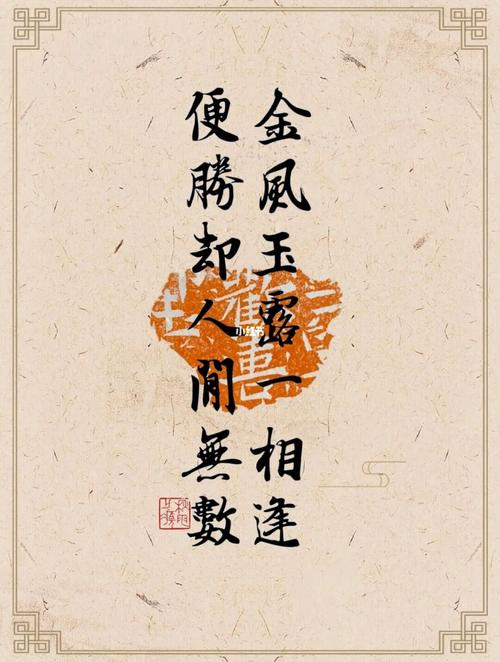 金風玉露一相逢
便勝却人間無數
小红书